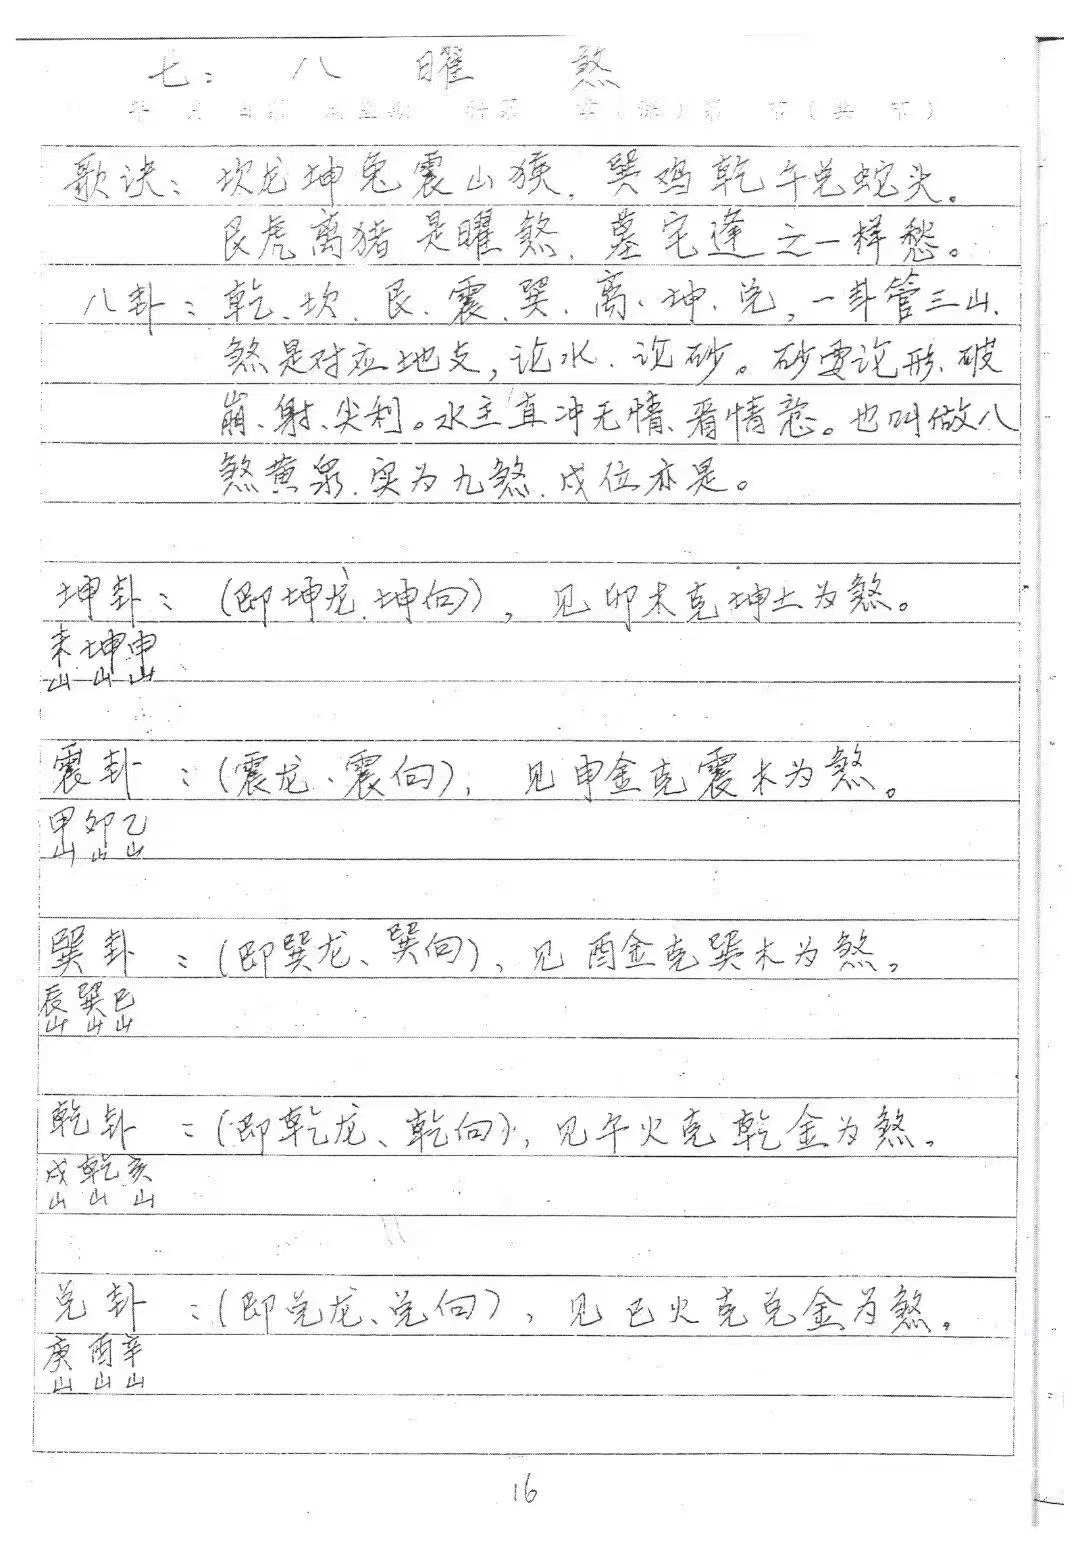 七：八曜煞
歌诀：坎龙坤兔震山猴．巽鸡乾午兑蛇头。
艮虎离猪是曜煞．墓宅逢之一样愁。
八卦：乾、坎、艮、震、巽、离、坤、兑，一卦管三山、
煞是对应地支，论水、论砂。砂要论形、破
崩、射、尖利。水主直冲无情、看情意。也叫做八
煞黄泉．实为九煞．戌位亦是。
坤卦：（即坤龙、坤向），见卯木克坤土为煞。
未坤申
山山山
震卦：（震龙、震向），见申金克震木为煞。
甲卯乙
山山山
巽卦：（即巽龙、巽向），见酉金克巽木为煞。
辰巽巳
山山山
乾卦：（即乾龙、乾向），见午火克乾金为煞。
戌乾亥
山山山
兑卦：（即兑龙、兑向），见巳火克兑金为煞。
庚酉辛
山山山
16